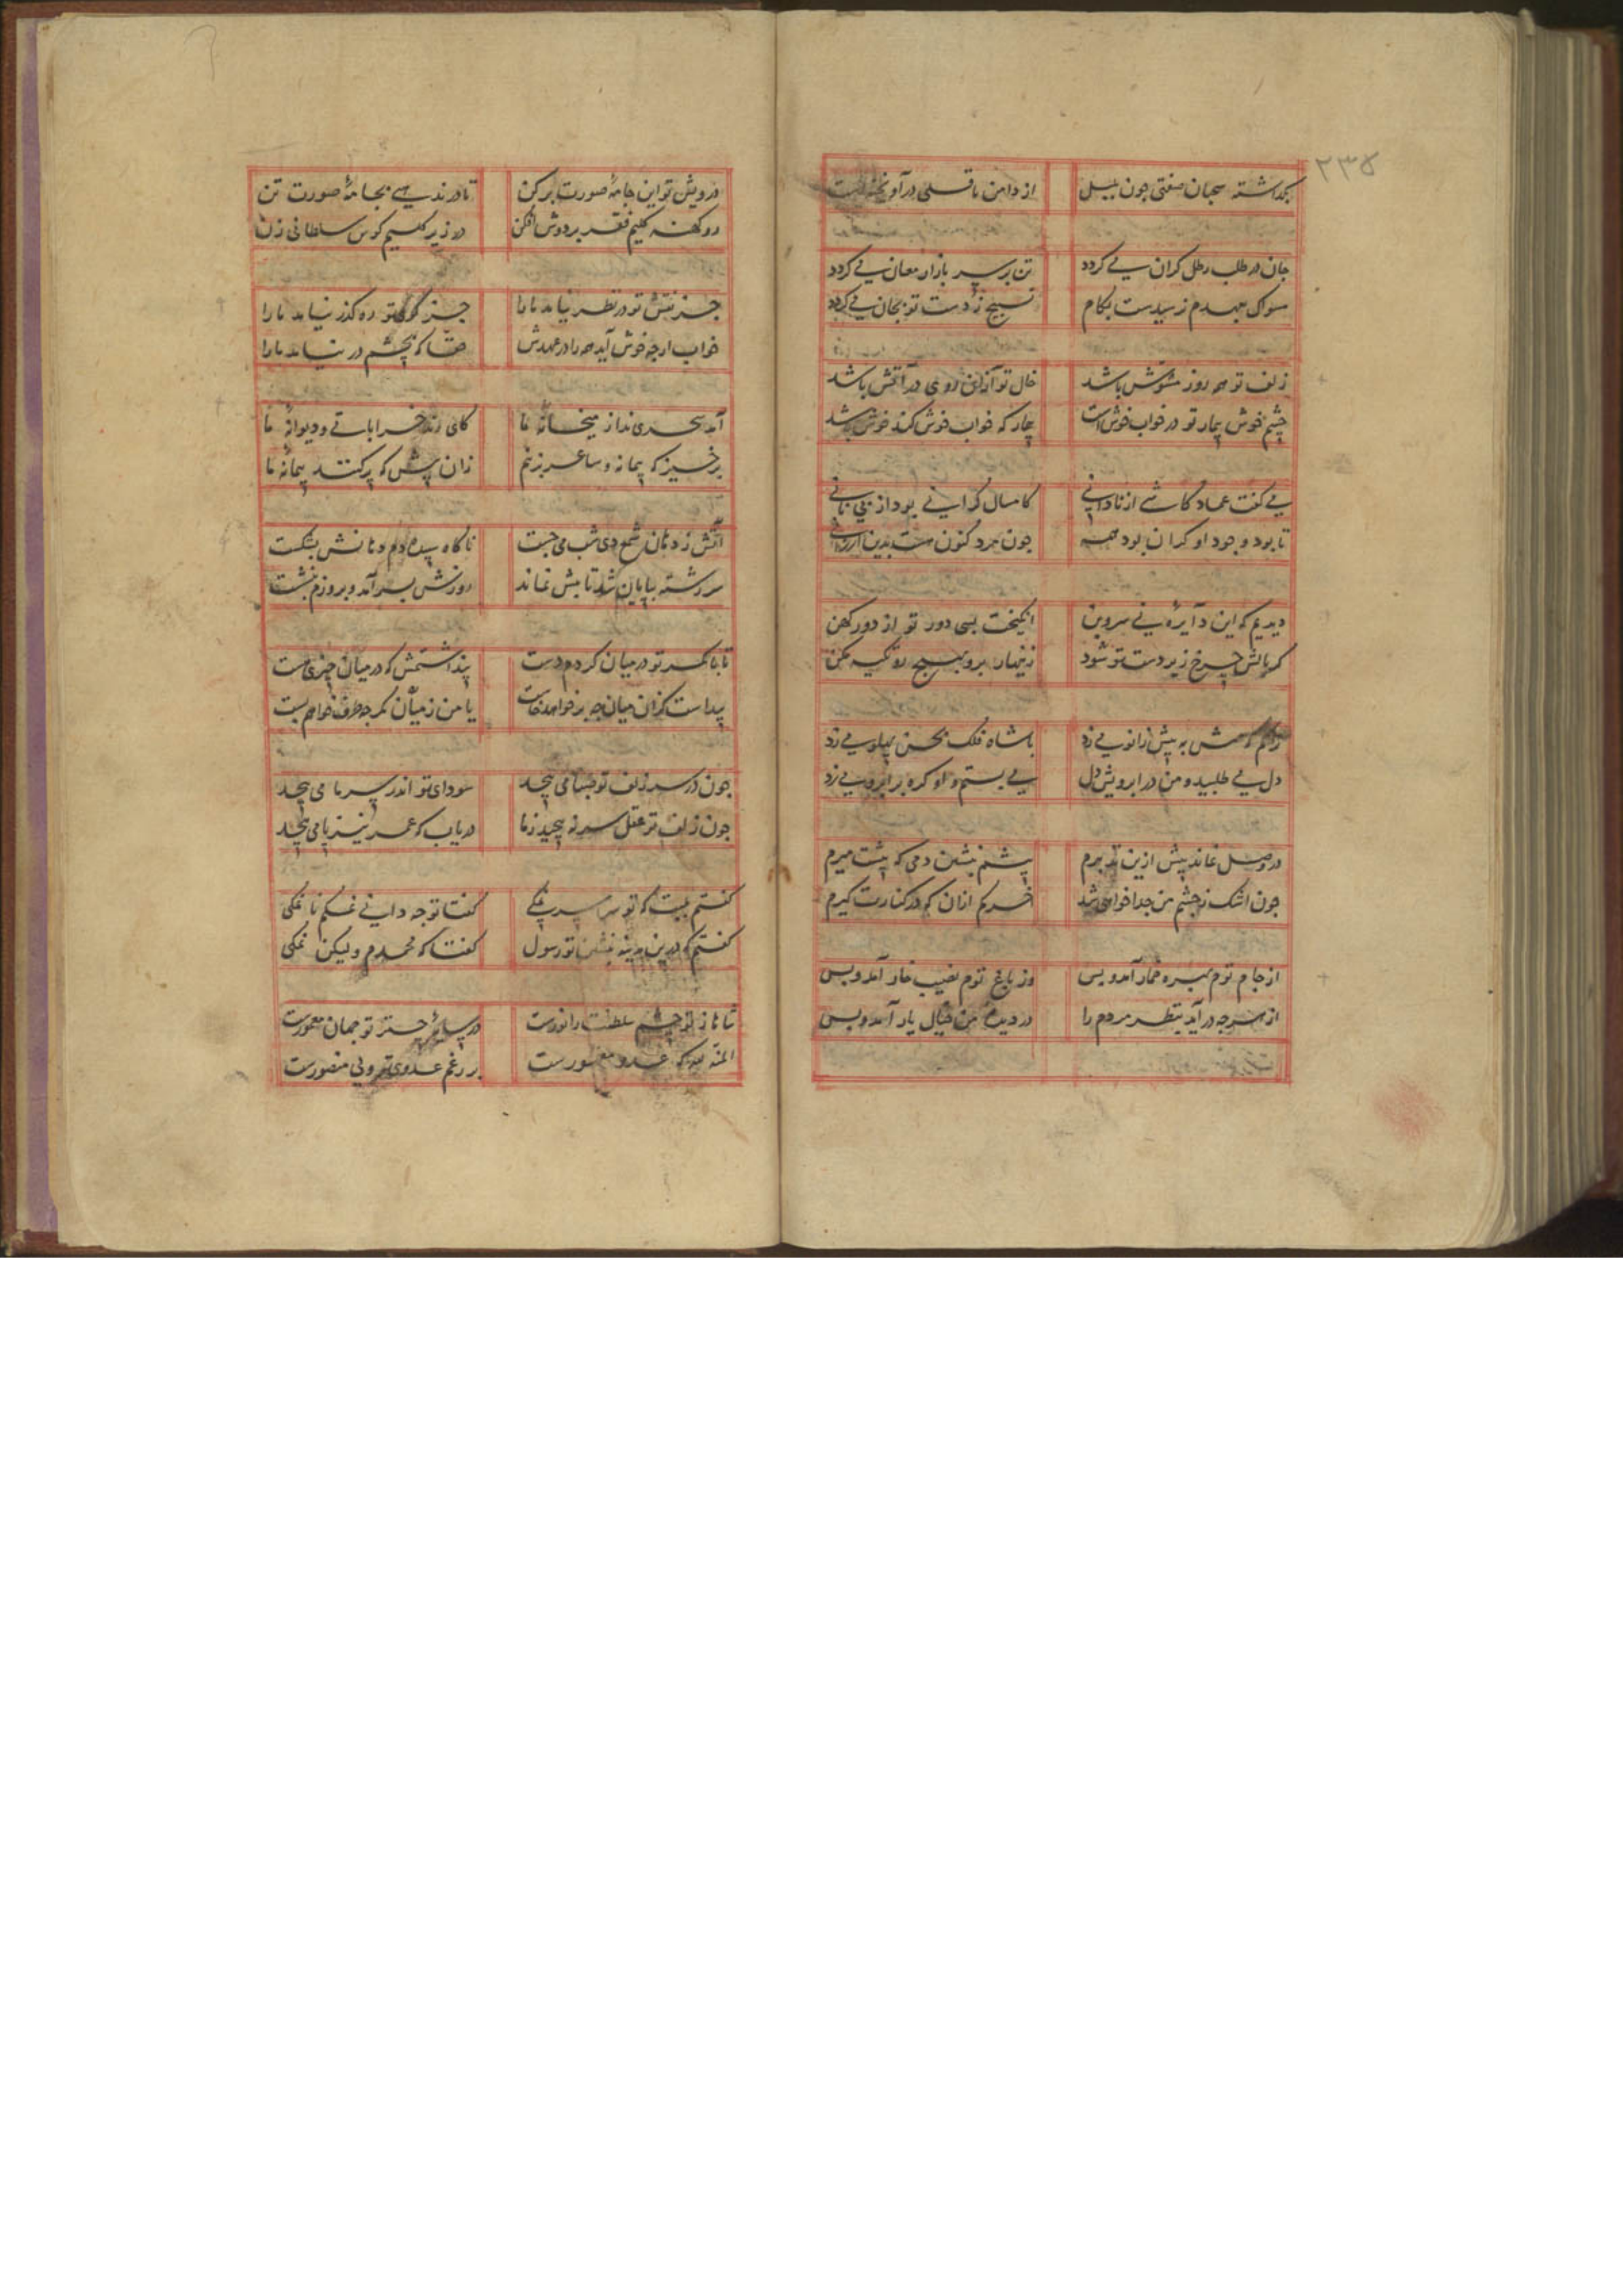 ۲۳۵
بگذاشته سحبان صفتی چون بیدل از دامن باقلی درآویخته است
جان در طلب رطل گران می گردد تن بر سر بازار مغان می گردد
سواک بهدم رسیدست بکام تسبیح ز دست تو بجان می گردد
زلف تو همه روز مشوش باشد خال تو از آن روی در آتش باشد
چشم خوش بیمار تو در خواب خوش است بیمار که خواب خوش کند خوش باشد
می گفت عماد کاشی از نادانی کامسال گرانی بود از بی نانی
تا بود وجود او گران بود همه چون مرد کنون هست بدین ارزانی
دیدیم که این دایره بی سر و بن انگیخت بسی دور تو از دور کهن
گر بالش چرخ زیر دست تو شود زنهار برو بهیچ رو تکیه مکن
مش به پیش زانو می زد با شاه فلک بحسن پهلو می زد
دل می طلبید و من در ابرویش دل می بستم و او گره بر ابرو می زد
در وصل نماند پیش ازین تدبیرم پیشم بنشین دمی که پیشت میرم
چون اشک ز چشم من جدا خواهی شد خرم از آن که در کنارت گیرم
از جام توم بهره خمار آمد و بس وز باغ توم نصیب خار آمد و بس
از هرچه درآید بنظر مردم را در دیدهٔ من خیال یار آمد و بس
درویش تو این جامهٔ صورت برکن تا در ندهی بجامهٔ صورت تن
رو کهنه گلیم فقر بر دوش افکن در زیر گلیم کوس سلطانی زن
جز نقش تو در نظر نیامد ما را جز کوی تو ره گذر نیامد ما را
خواب ارچه خوش آید همه را در عهدش حقا که بچشم در نیامد ما را
آمد سحری ندا ز میخانهٔ ما کای رند خراباتی و دیوانهٔ ما
برخیز که پیمانه و ساغر بزنیم زان پیش که پر کنند پیمانهٔ ما
آتش ز دهان شمع دی شب می جست ناگاه سپیده دم دهانش بشکست
سررشته بپایان شد و تابش نماند روزش بسر آمد و بروزم بنشست
تا با کمر تو در میان کردم دست پنداشتمش که در میان چیزی هست
پیداست کزان میان چه برخواهد خاست تا من ز میان کمر چه طرف خواهم بست
چون در سر زلف تو صبا می پیچد سودای تو اندر سر ما می پیچد
چون زلف تو عقل سر نه پیچید ز ما دریاب که عمر نیز پا می پیچد
گفتم عیبت که تو سراسر نمکی گفتا تو چه دانی غمکم نا نمکی
گفتم که درین مدینه بنشین تو رسول گفتا که محمدم ولیکن نمکی
شاها ز تو چشم سلطنت را نورست در سایهٔ چتر تو جهان معمورست
المنه لله که عدو مقهورست بر رغم عدوی تو ولی منصورست